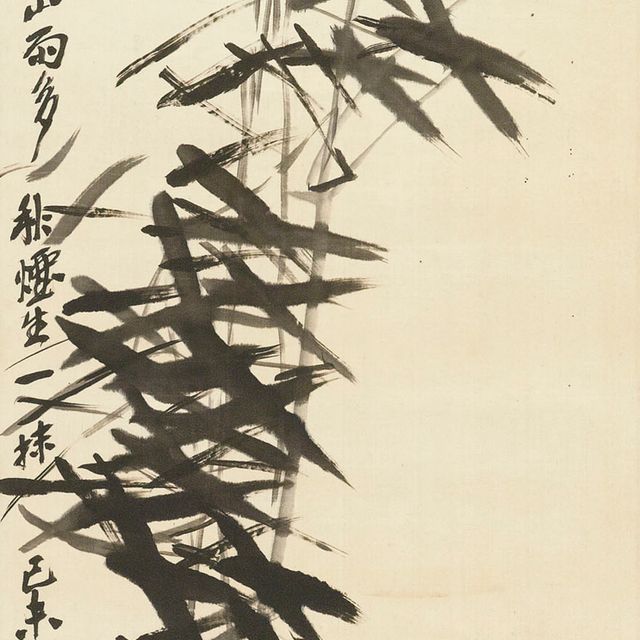 山雨多秋烟生一抹己未